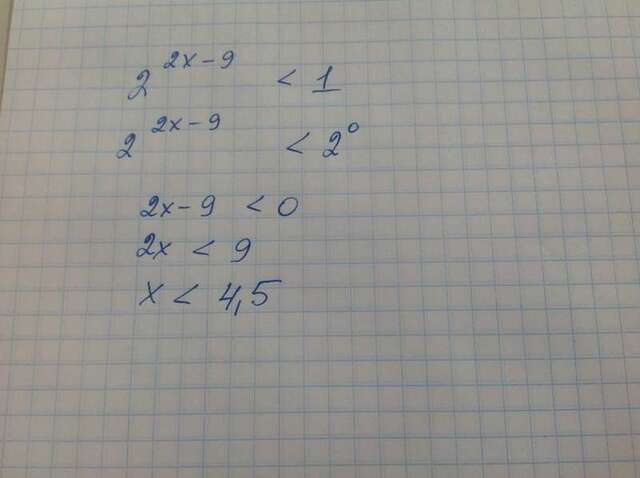 2^{2x-9} < 1
2^{2x-9} < 2^0
2x-9 < 0
2x < 9
x < 4,5